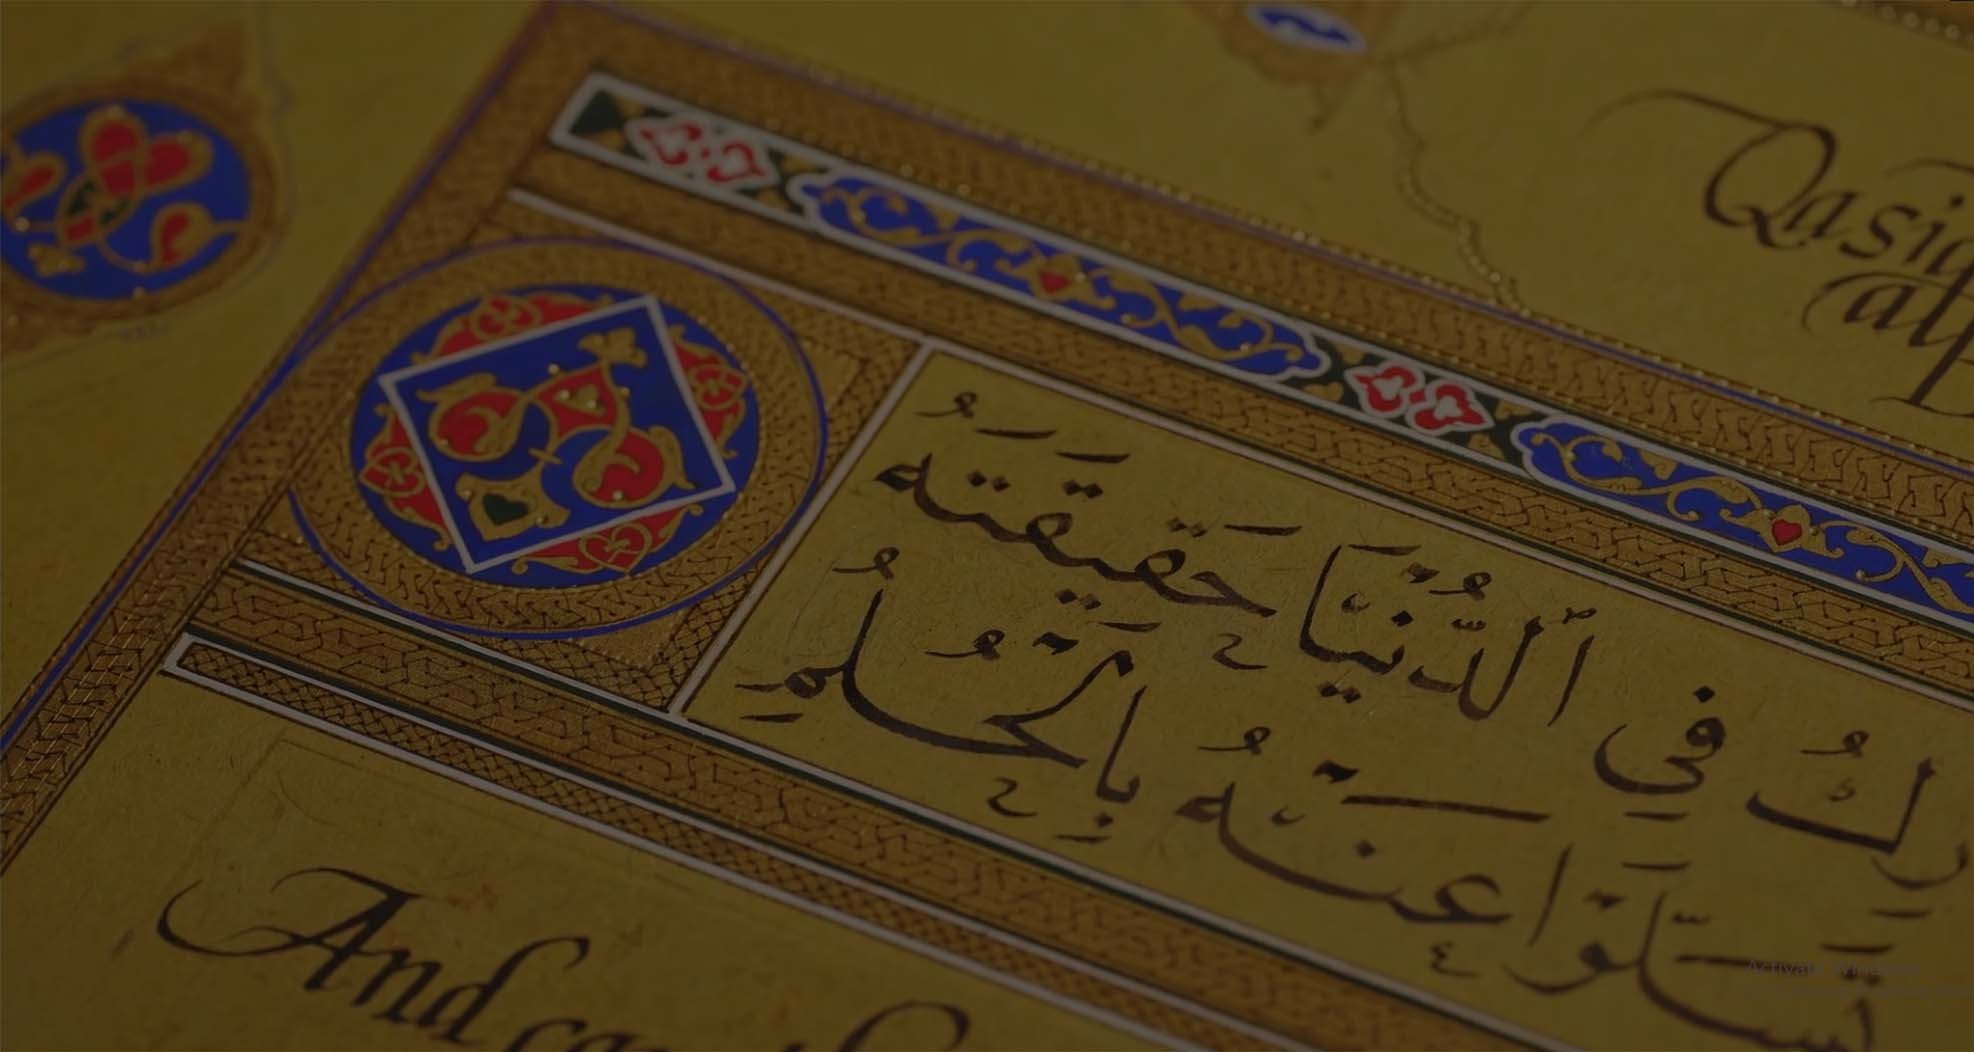 Qasid
al
رِكُ فِي ٱلدُّنْيَا حَقِيقَتَهُ
تَسَلَّوْا عَنْهُ بِٱلْحُلُمِ
And
Activate Windows